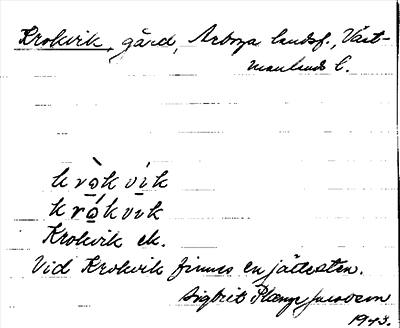 Krokvik, gård, Arboga landsf., Väst-
manlands l.
krò̱kvi̱k
kró̱kvik
Krokvik ek.
Vid Krokvik finnes en jättesten.
Sigbrit Plænge Jacobson
1943.